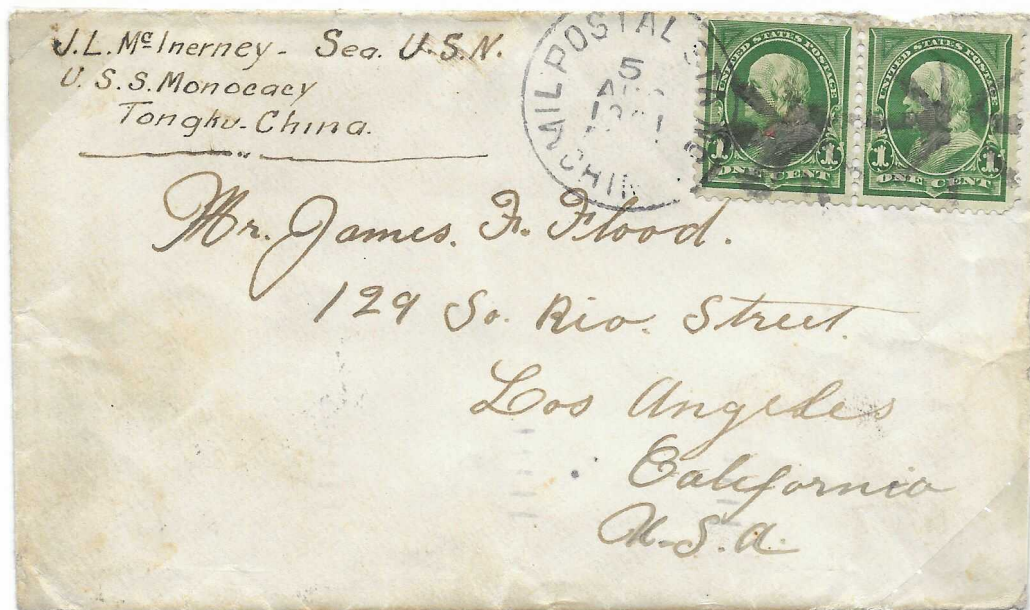 J.L. McInerney - Sea. U.S.N.
U.S.S. Monocacy
Tongku-China.
MAIL POSTAL
5
CHIN
UNITED STATES POSTAGE
1 1
ONE CENT
UNITED STATES POSTAGE
1 1
ONE CENT
Mr. James. F. Flood.
129 So. Rio. Street.
Los Angeles
California
U.S.A.